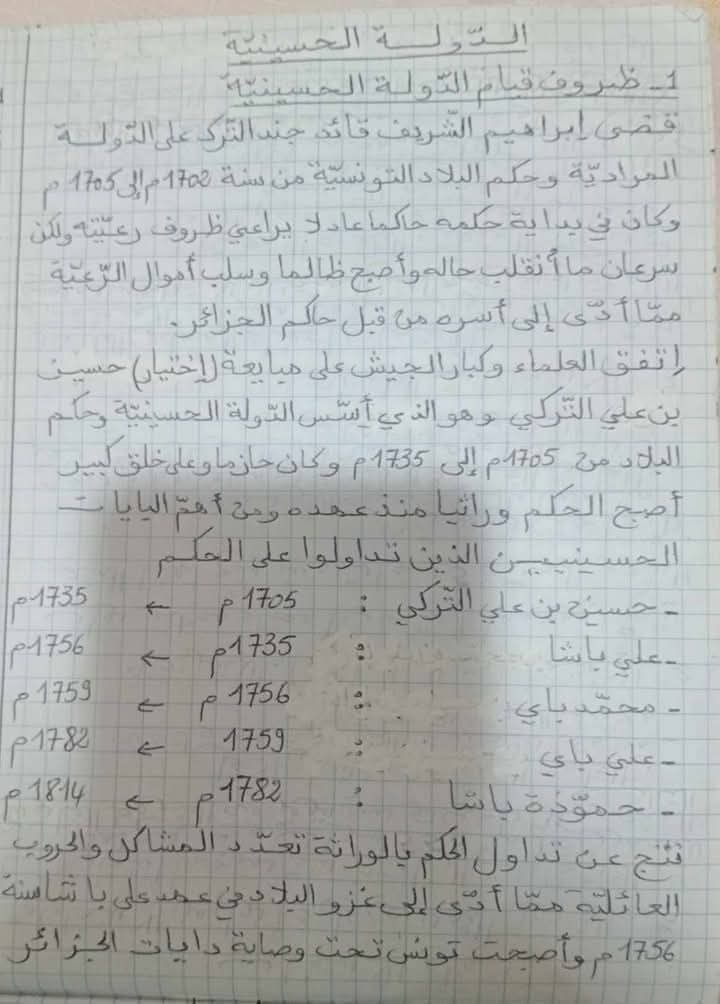 الدّولة الحسينيّة
1- ظروف قيام الدّولة الحسينيّة
قضى إبراهيم الشّريف قائد جند التّرك على الدّولة
المراديّة وحكم البلاد التونسيّة من سنة 1702م إلى 1705م
وكان في بداية حكمه حاكما عادلا يراعي ظروف رعيّته ولكن
سرعان ما أنقلب حاله وأصبح ظالما وسلب أموال الرّعيّة
ممّا أدّى إلى أسره من قبل حاكم الجزائر.
إتفق العلماء وكبار الجيش على مبايعة (إختيار) حسين
بن علي التّركي وهو الذي أسّس الدّولة الحسينيّة وحكم
البلاد من 1705م إلى 1735م وكان حازما وعلى خلق كبير
أصبح الحكم وراثيا منذ عهده ومن أهمّ البايات
الحسينيين الذين تداولوا على الحكم
- حسين بن علي التّركي : 1705م ← 1735م
- علي باشا : 1735م ← 1756م
- محمّد باي : 1756م ← 1759م
- علي باي : 1759 ← 1782م
- حمّودة باشا : 1782م ← 1814م
نتج عن تداول الحكم بالوراثة تعدّد المشاكل والحروب
العائليّة ممّا أدّى إلى غزو البلاد في عهد علي باشا سنة
1756م وأصبحت تونس تحت وصاية دايات الجزائر